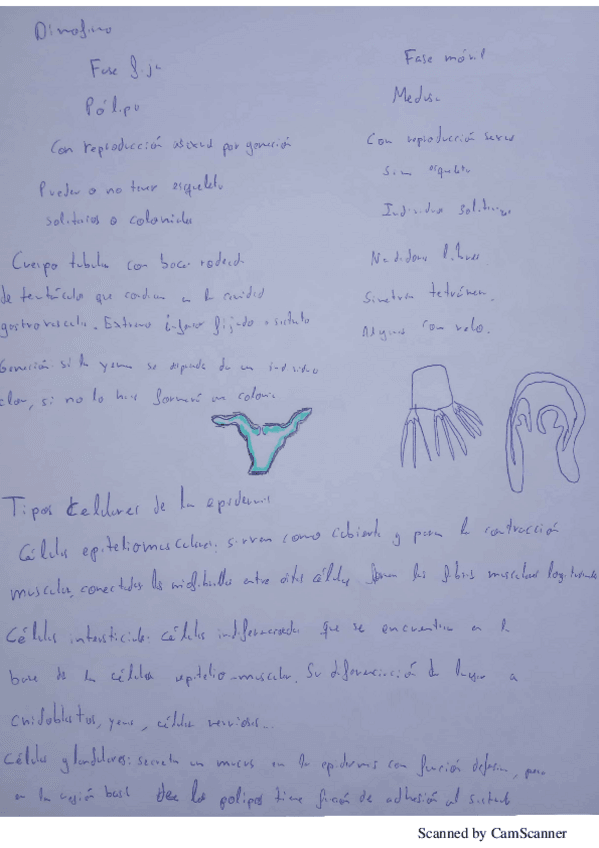 Dimofismo
Fase fija
Fase móvil
Pólipo
Medusa
Con reproducción asexual por gemación
Con reproducción sexual
Pueden o no tener esqueleto
Sin esqueleto
solitarios o coloniales
Individuos solitarios
Cuerpo tubular con boca rodeada
Nadadores libres
de tentáculo que conducen a la cavidad
Simetría tetrámera.
gastrovascular. Extremo inferior fijado a sustrato
Algunas con velo.
Gemación: si la yema se separa da un individuo
clon, si no lo hace formará un colonia
Tipos celulares de la epidermis
Células epiteliomusculares: sirven como cubierta y para la contracción
muscular, conectadas las miofibrillas entre otras células forman las fibras musculares longitudinales
Células intersticiales: células indiferenciadas que se encuentran en la
base de las células epitelio-muscular. Su diferenciación da lugar a
cnidoblastos, yemas, células nerviosas...
Células glandulares: secretan un mucus en la epidermis con función defensiva, pero
en la región basal de los pólipos tiene función de adhesión al sustrato
Scanned by CamScanner